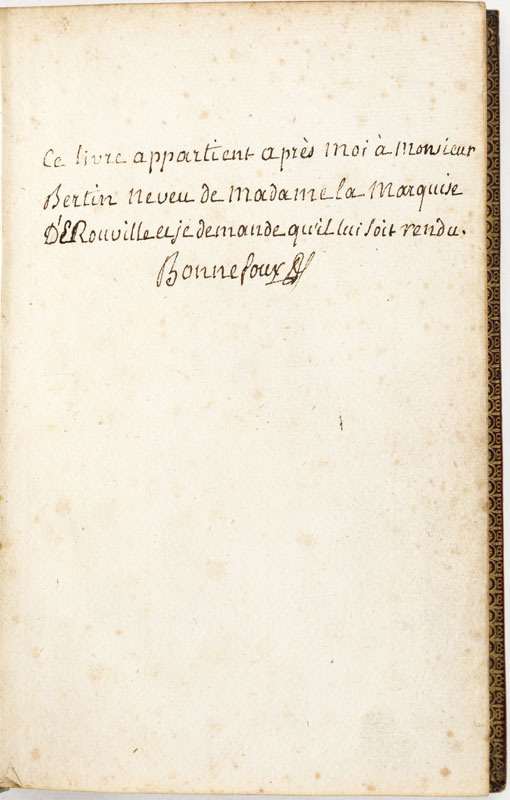 Ce livre appartient après moi à Monsieur
Bertin Neveu de Madame la Marquise
D'ERouville et je demande qu'il lui soit rendu.
Bonnefoux